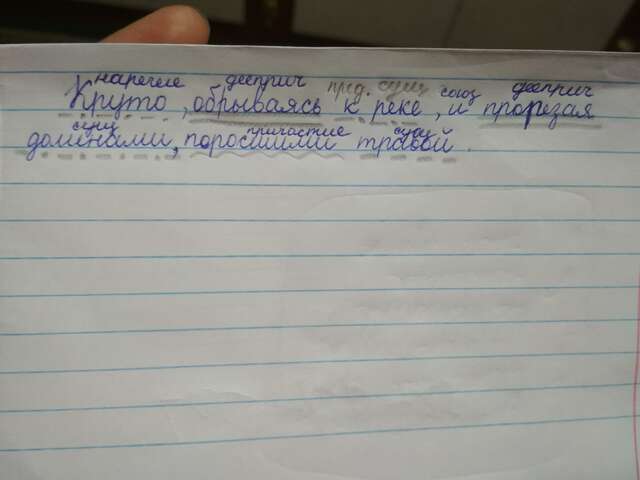 наречие дееприч пред. сущ союз дееприч
Круто, обрываясь к реке, и прорезая
сущ причастие сущ
доминами, поросшими травой.